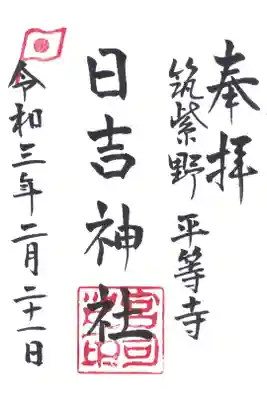 奉拝
筑紫野 平等寺
日吉神社
令和三年二月二十一日